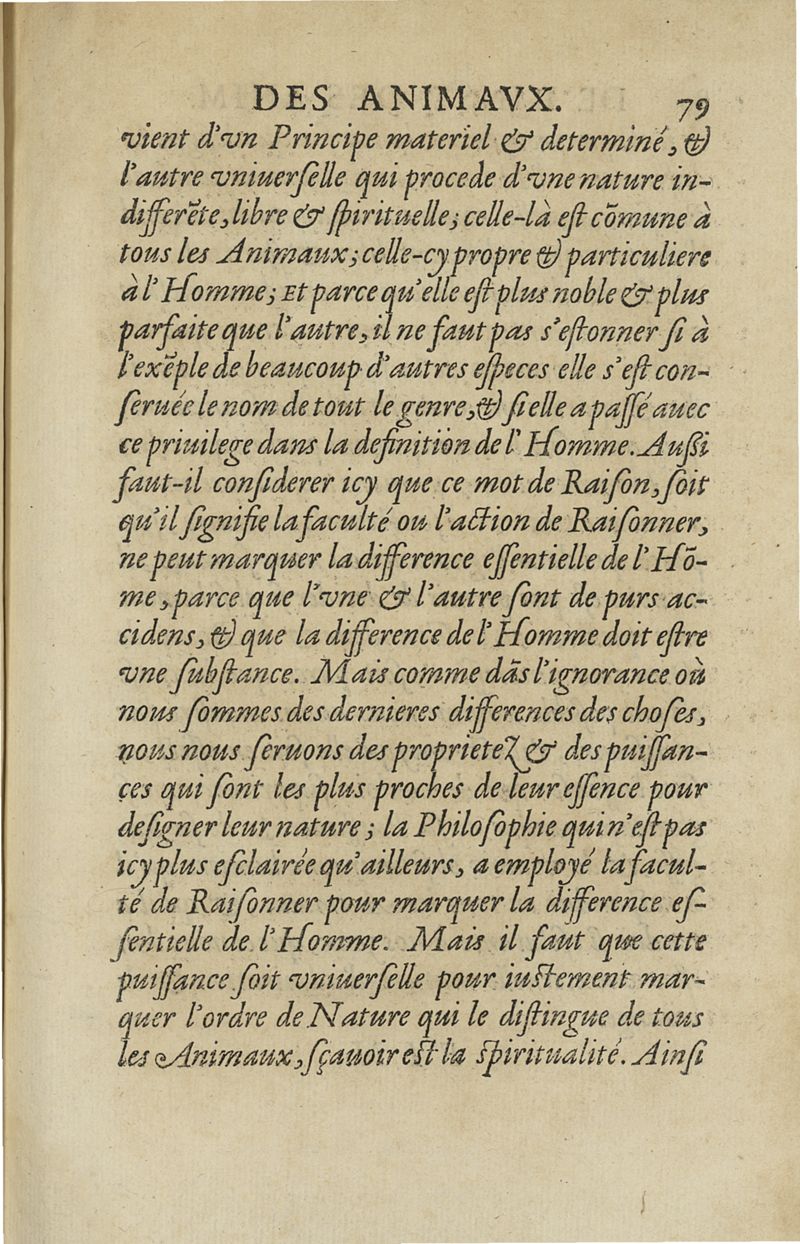 DES ANIMAVX. 79
vient d'vn Principe materiel & determiné, &
l'autre vniuerſelle qui procede d'vne nature in-
differẽte, libre & ſpirituelle; celle-là eſt cõmune à
tous les Animaux; celle-cy propre & particuliere
à l'Homme; Et parce qu'elle eſt plus noble & plus
parfaite que l'autre, il ne faut pas s'eſtonner ſi à
l'exẽple de beaucoup d'autres eſpeces elle s'eſt con-
ſeruée le nom de tout le genre, & ſi elle a paſſé auec
ce priuilege dans la definition de l'Homme. Auſſi
faut-il conſiderer icy que ce mot de Raiſon, ſoit
qu'il ſignifie la faculté ou l'action de Raiſonner,
ne peut marquer la difference eſſentielle de l'Hõ-
me, parce que l'vne & l'autre ſont de purs ac-
cidens, & que la difference de l'Homme doit eſtre
vne ſubſtance. Mais comme dãs l'ignorance où
nous ſommes des dernieres differences des choſes,
nous nous ſeruons des proprietez & des puiſſan-
ces qui ſont les plus proches de leur eſſence pour
deſigner leur nature; la Philoſophie qui n'eſt pas
icy plus eſclairée qu'ailleurs, a employé la facul-
té de Raiſonner pour marquer la difference eſ-
ſentielle de l'Homme. Mais il faut que cette
puiſſance ſoit vniuerſelle pour iuſtement mar-
quer l'ordre de Nature qui le diſtingue de tous
les Animaux, ſçauoir eſt la ſpiritualité. Ainſi